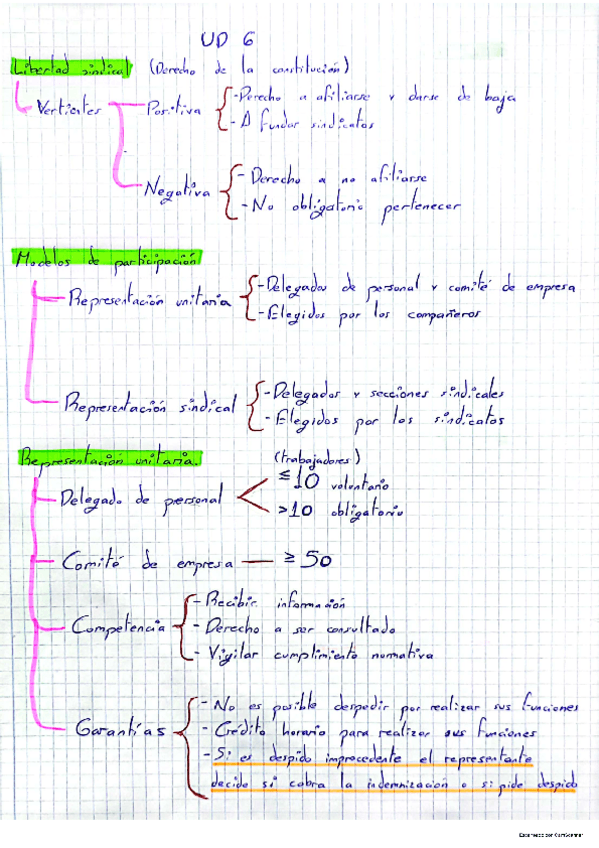 UD 6
Libertad sindical (Derecho de la constitución)
Vertientes
Positiva
- Derecho a afiliarse y darse de baja
- A fundar sindicatos
Negativa
- Derecho a no afiliarse
- No obligatorio pertenecer
Modelos de participación
Representación unitaria
- Delegados de personal y comité de empresa
- Elegidos por los compañeros
Representación sindical
- Delegados y secciones sindicales
- Elegidos por los sindicatos
Representación unitaria.
(trabajadores)
Delegado de personal
≤10 voluntario
>10 obligatorio
Comité de empresa — ≥ 50
Competencia
- Recibir información
- Derecho a ser consultado
- Vigilar cumplimiento normativa
Garantías
- No es posible despedir por realizar sus funciones
- Crédito horario para realizar sus funciones
- Si es despido improcedente el representante
decide si cobra la indemnización o si pide despido
Escaneado con CamScanner